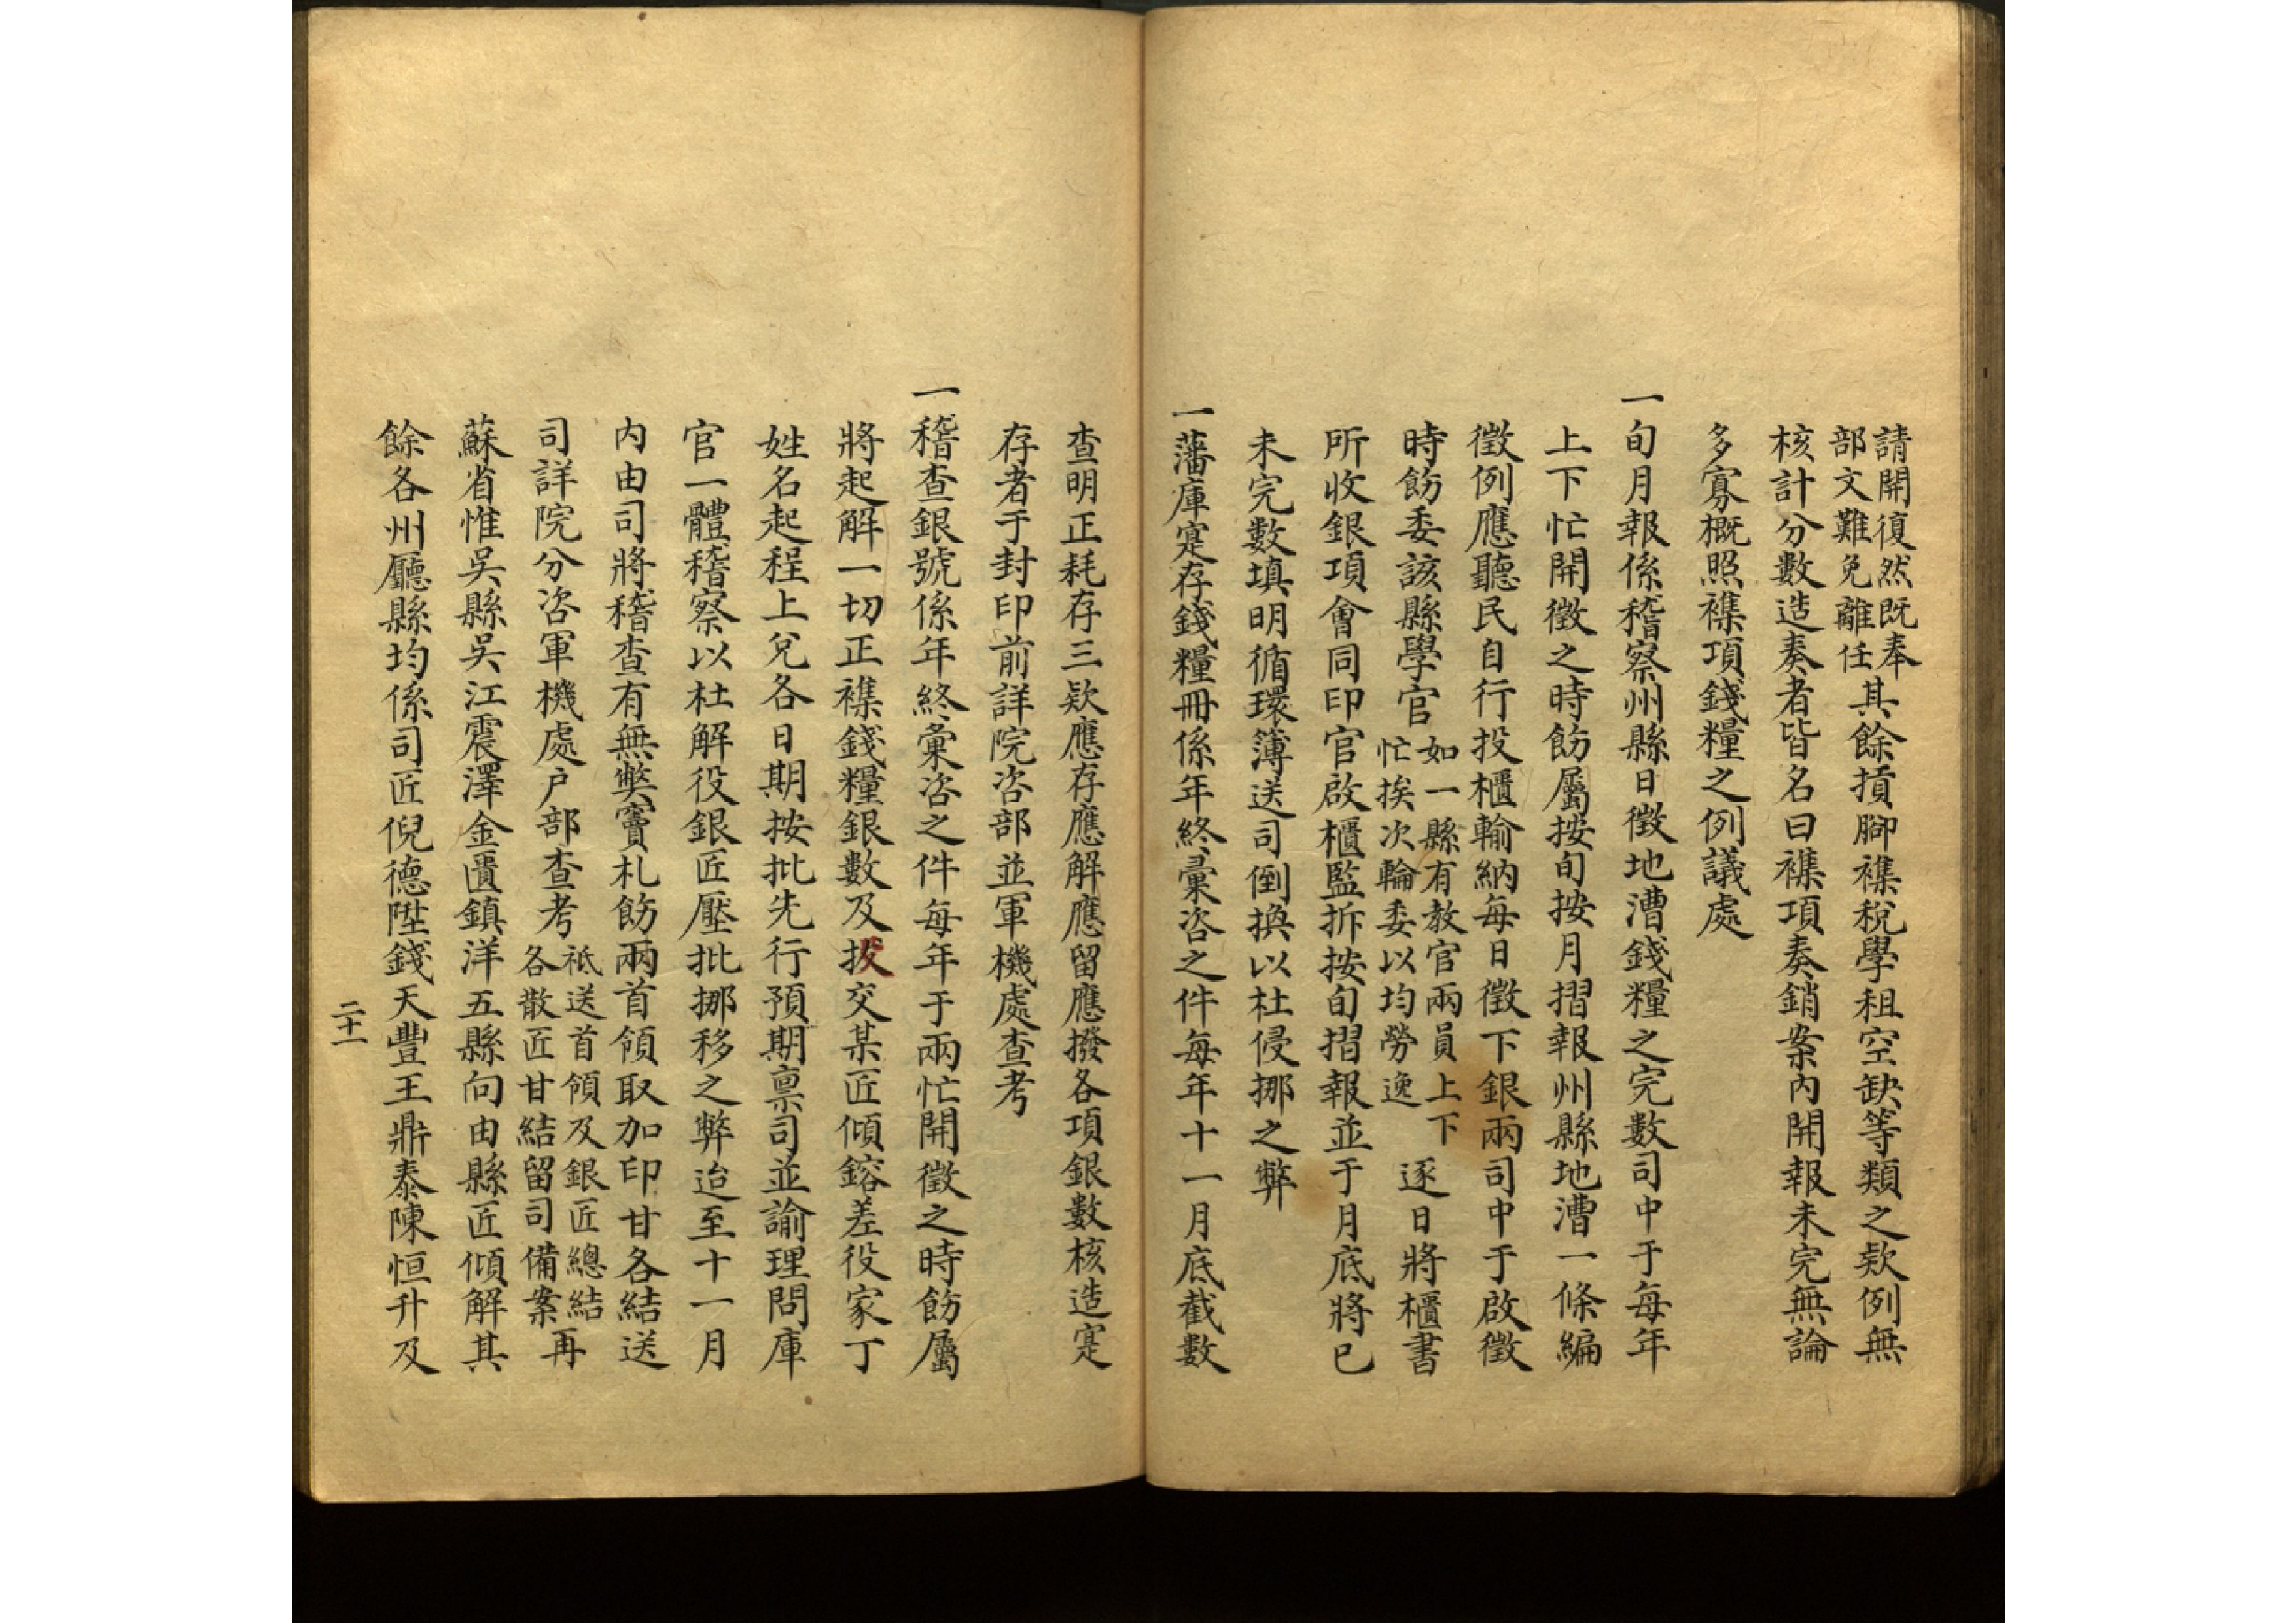 請開復然既奉
部文難免離任
其餘摃腳襍稅學租空缺等類之欵例無
核計分數造奏者皆名曰襍項奏銷案內開報未完無論
多寡概照襍項錢糧之例議處
一旬月報係稽察州縣日徵地漕錢糧之完數司中于每年
上下忙開徵之時飭屬按旬按月摺報州縣地漕一條編
徵例應聽民自行投櫃輸納每日徵下銀兩司中于啟徵
時飭委該縣學官
如一縣有教官兩員上下
忙挨次輪委以均勞逸
逐日將櫃書
所收銀項會同印官啟櫃監拆按旬摺報並于月底將已
未完數填明循環簿送司倒換以杜侵挪之弊
一藩庫寔存錢糧冊係年終彙咨之件每年十一月底截數
查明正耗存三欵應存應解應留應撥各項銀數核造寔
存者于封印前詳院咨部並軍機處查考
一稽查銀號係年終彙咨之件每年于兩忙開徵之時飭屬
將起解一切正襍錢糧銀數及投交某匠傾鎔差役家丁
姓名起程上兌各日期按批先行預期禀司並諭理問庫
官一體稽察以杜解役銀匠壓批挪移之弊迨至十一月
內由司將稽查有無獘竇札飭兩首領取加印甘各結送
司詳院分咨軍機處户部查考
祗送首領及銀匠總結
各散匠甘結留司備案
再
蘇省惟吳縣吳江震澤金匱鎮洋五縣向由縣匠傾解其
餘各州廳縣均係司匠倪德陞錢天豐王鼎泰陳恒升及
二十一